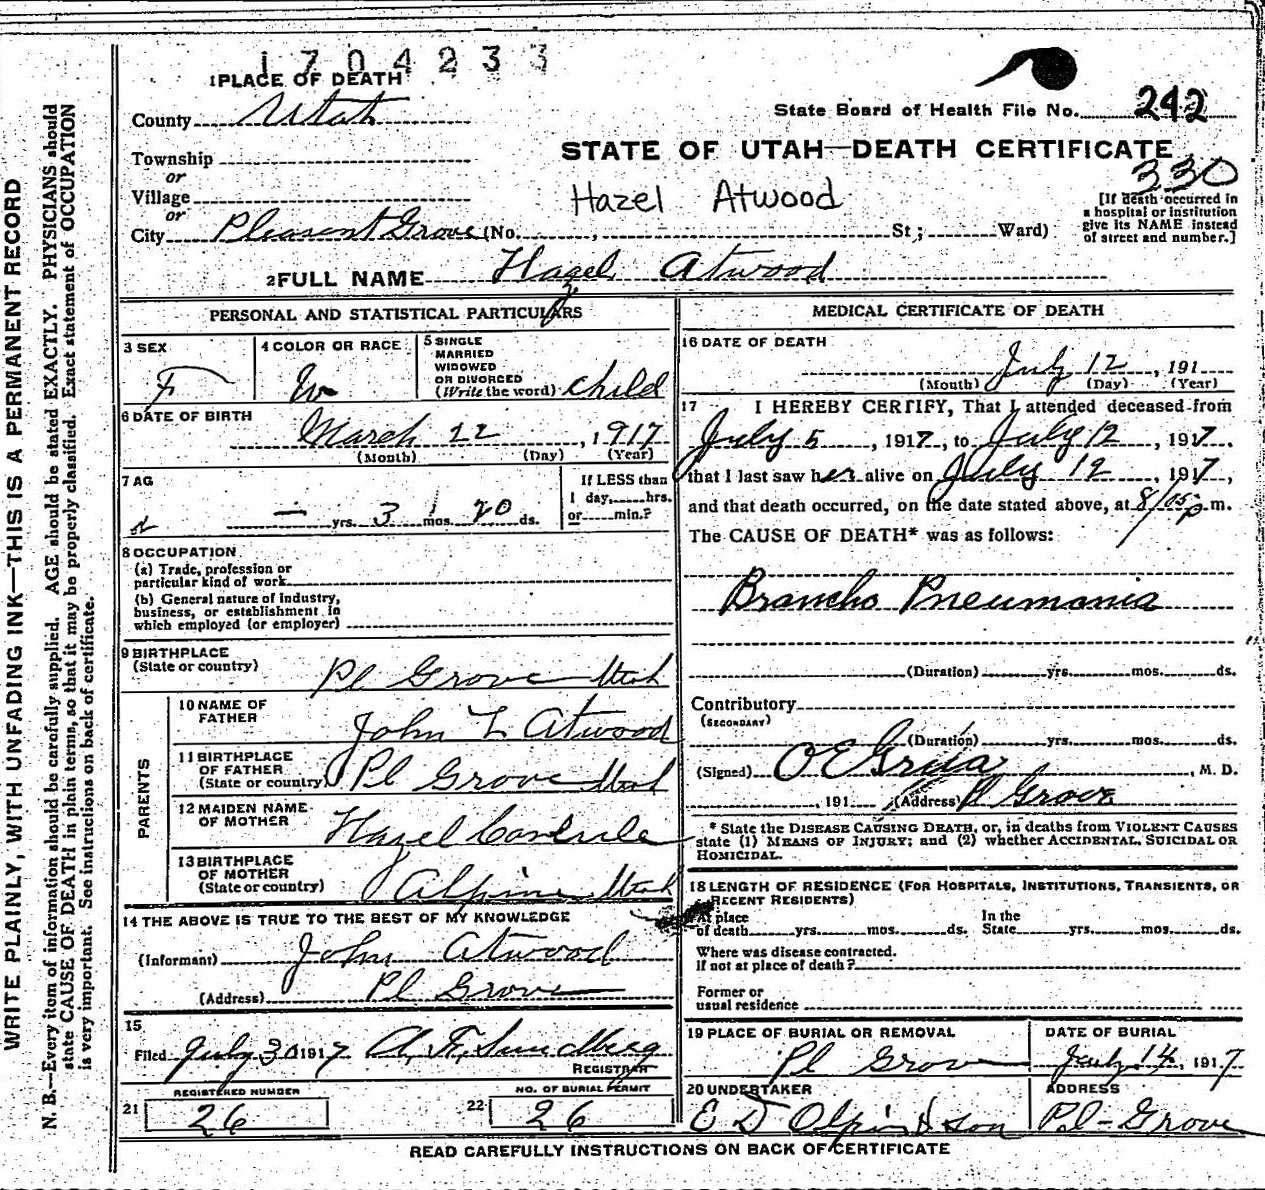 1704233
1 PLACE OF DEATH
County Utah
State Board of Health File No. 242
Township
or
Village
or
City Pleasant Grove (No. , St; Ward)
STATE OF UTAH—DEATH CERTIFICATE
330
Hazel Atwood
[If death occurred in
a hospital or institution
give its NAME instead
of street and number.]
2 FULL NAME Hazel Atwood
PERSONAL AND STATISTICAL PARTICULARS
3 SEX
F
4 COLOR OR RACE
W
5 SINGLE
MARRIED
WIDOWED
OR DIVORCED
(Write the word) child
6 DATE OF BIRTH
March 22, 1917
(Month) (Day) (Year)
7 AG
— yrs. 3 mos. 20 ds.
If LESS than
1 day, hrs.
or min.?
8 OCCUPATION
(a) Trade, profession or
particular kind of work
(b) General nature of industry,
business, or establishment in
which employed (or employer)
9 BIRTHPLACE
(State or country)
Pl Grove Utah
PARENTS
10 NAME OF
FATHER
John L Atwood
11 BIRTHPLACE
OF FATHER
(State or country)
Pl Grove Utah
12 MAIDEN NAME
OF MOTHER
Hazel Carlisle
13 BIRTHPLACE
OF MOTHER
(State or country)
Alpine Utah
14 THE ABOVE IS TRUE TO THE BEST OF MY KNOWLEDGE
(Informant) John Atwood
(Address) Pl Grove
15
Filed July 30 1917 A. F. Sundberg
REGISTRAR
REGISTERED NUMBER
21 26
NO. OF BURIAL PERMIT
22 26
MEDICAL CERTIFICATE OF DEATH
16 DATE OF DEATH
July 12, 191
(Month) (Day) (Year)
17 I HEREBY CERTIFY, That I attended deceased from
July 5, 1917, to July 12, 1917.
that I last saw her alive on July 12, 1917,
and that death occurred, on the date stated above, at 8/05 p.m.
The CAUSE OF DEATH* was as follows:
Brancho Pneumonia
(Duration) yrs. mos. ds.
Contributory
(SECONDARY)
(Duration) yrs. mos. ds.
(Signed) O E Grua, M. D.
, 191 (Address) Pl Grove
* State the DISEASE CAUSING DEATH, or, in deaths from VIOLENT CAUSES
state (1) MEANS OF INJURY; and (2) whether ACCIDENTAL, SUICIDAL OR
HOMICIDAL.
18 LENGTH OF RESIDENCE (FOR HOSPITALS, INSTITUTIONS, TRANSIENTS, OR
RECENT RESIDENTS)
At place
of death yrs. mos. ds.
In the
State yrs. mos. ds.
Where was disease contracted.
if not at place of death?
Former or
usual residence
19 PLACE OF BURIAL OR REMOVAL
Pl Grove
DATE OF BURIAL
July 14, 1917
20 UNDERTAKER
E D Olpin & Son
ADDRESS
Pl-Grove
READ CAREFULLY INSTRUCTIONS ON BACK OF CERTIFICATE
WRITE PLAINLY, WITH UNFADING INK—THIS IS A PERMANENT RECORD
N. B.—Every item of information should be carefully supplied. AGE should be stated EXACTLY. PHYSICIANS should
state CAUSE OF DEATH in plain terms, so that it may be properly classified. Exact statement of OCCUPATION
is very important. See instructions on back of certificate.